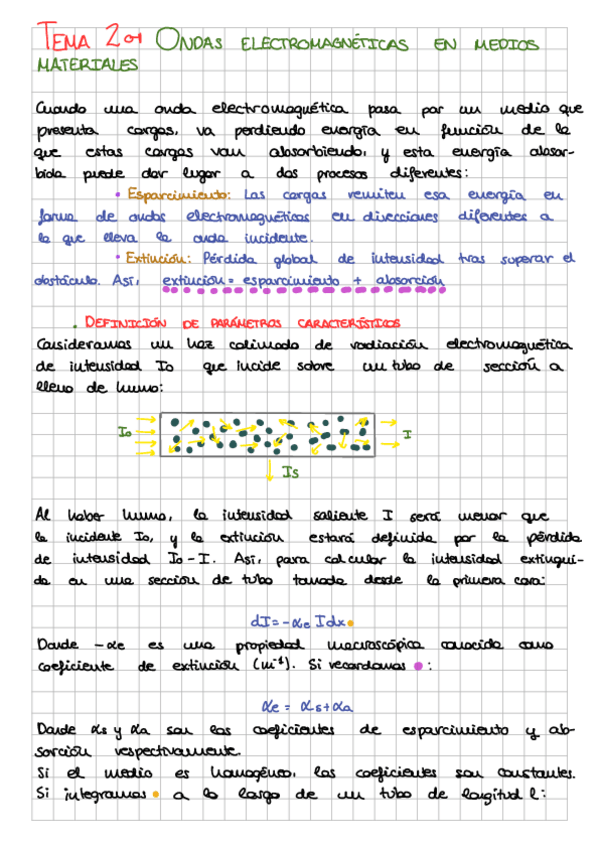 TEMA 2.- ONDAS ELECTROMAGNÉTICAS EN MEDIOS
MATERIALES
Cuando una onda electromagnética pasa por un medio que
presenta cargas, va perdiendo energía en función de la
que estas cargas van absorbiendo, y esta energía absor-
bida puede dar lugar a dos procesos diferentes:
• Esparcimiento: Las cargas remiten esa energía en
forma de ondas electromagnéticas en direcciones diferentes a
la que lleva la onda incidente.
• Extinción: Pérdida global de intensidad tras superar el
obstáculo. Así, extinción = esparcimiento + absorción
. DEFINICIÓN DE PARÁMETROS CARACTERÍSTICOS
Consideramos un haz colimado de radiación electromagnética
de intensidad Io que incide sobre un tubo de sección a
lleno de humo:
Io
I
Is
Al haber humo, la intensidad saliente I será menor que
la incidente Io, y la extinción estará definida por la pérdida
de intensidad Io - I. Así, para calcular la intensidad extingui-
da en una sección de tubo tomada desde la primera cara:
dI = -αe I dx •
Donde -αe es una propiedad macroscópica conocida como
coeficiente de extinción (m⁻¹). Si recordamos • :
αe = αs + αa
Donde αs y αa son los coeficientes de esparcimiento y ab-
sorción respectivamente.
Si el medio es homogéneo, los coeficientes son constantes.
Si integramos • a lo largo de un tubo de longitud l: